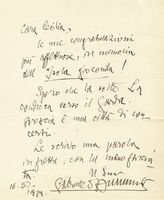 Cara Cecilia,
le mie congratulazioni
più affettuose, in memoria
dell' Isola gioconda!
Spero che la sorte La
conduca verso il Garda.
Brescia è una città di con-
certi.
Le scrivo una parola
in fretta, con la
Il Suo
Gabriele D'Annunzio